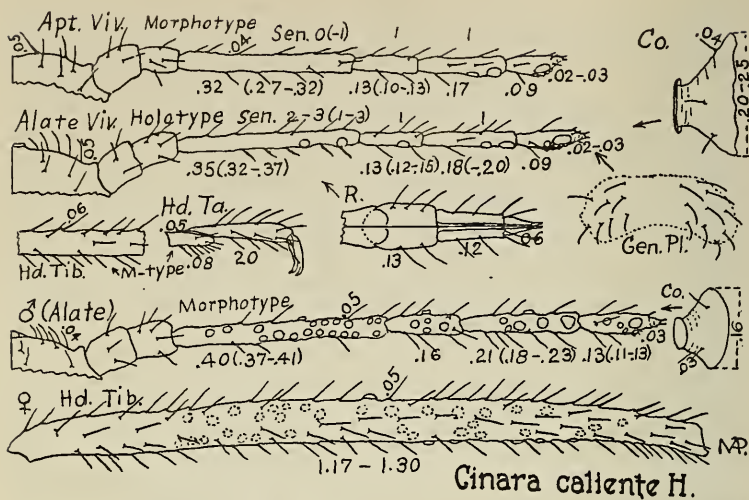 Apt. Viv. Morphotype Sen. 0(-1) 1 1 Co.
.05 .04 .04
.32 (.27-.32) .13(.10-.13) .17 .09 .02-.03 .20-.25
Alate Viv. Holotype Sen. 2-3(1-3) 1 1
.05 .35(.32-.37) .13(.12-.15) .18(-.20) .09 .02-.03
.06 Hd. Ta. R.
.05 .08 .20 .13 .12 .06 Gen. Pl.
Hd. Tib. M-type
♂ (Alate) Morphotype .05 Co.
.04 .40(.37-.41) .16 .21(.18-.23) .13(.11-.13) .03 .03 .16
♀ Hd. Tib. .05
1.17 - 1.30 MP.
Cinara caliente H.